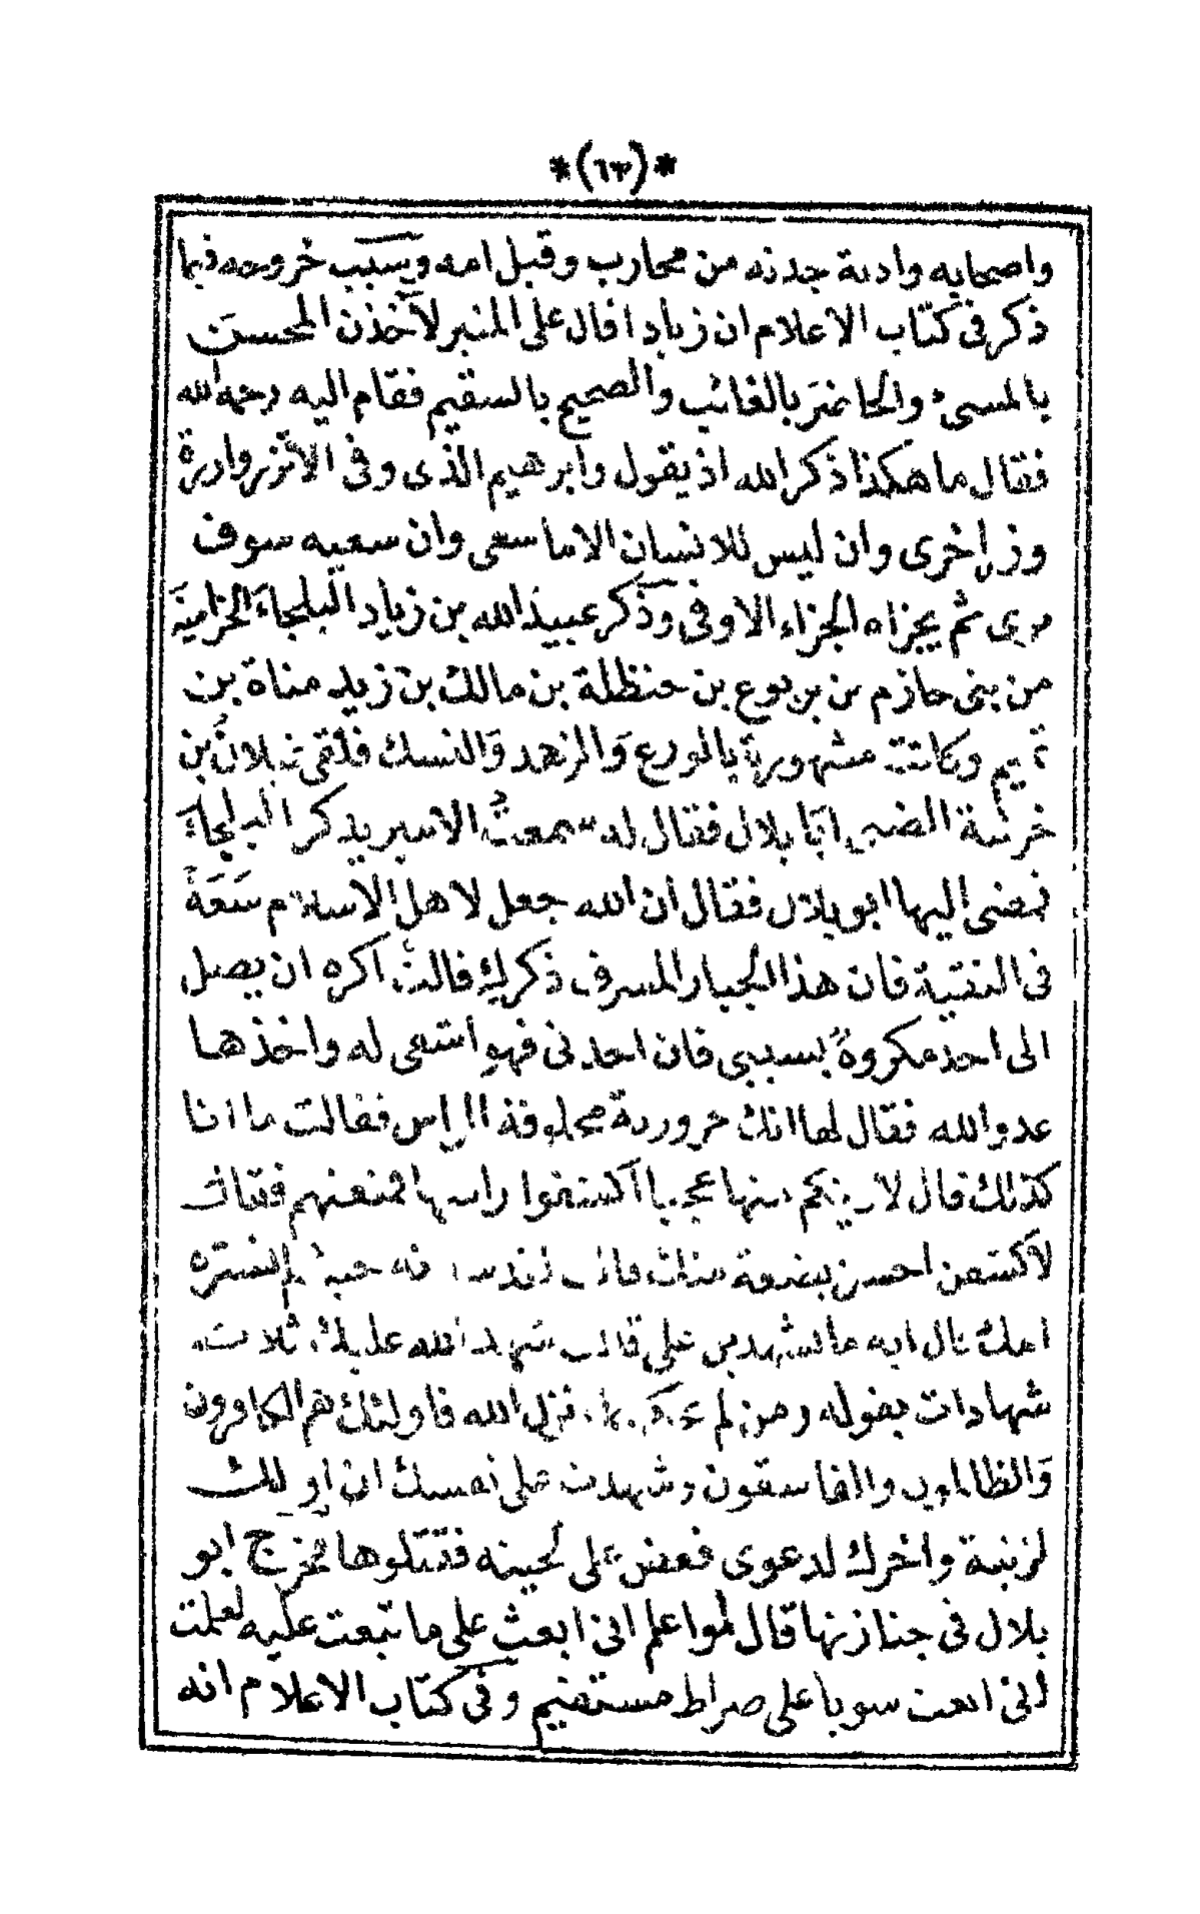 *(٦٣)*
واصحابه وادية جدته من محارب وقيل امه وسبب خروجه فيما
ذكر في كتاب الاعلام ان زيادا قال على المنبر لآخذن المحسن
بالمسىء والحاضر بالغائب والصحيح بالسقيم فقام اليه رحمه الله
فقال ما هكذا ذكر الله اذ يقول وابرهيم الذى وفى الا تزر وازرة
وزر اخرى وان ليس للانسان الا ما سعى وان سعيه سوف
يرى ثم يجزاه الجزاء الاوفى وذكر عبيد الله بن زياد البلجاء الحزامية
من بنى حازم بن يربوع بن حنظلة بن مالك بن زيد مناة بن
تميم وكانت مشهورة بالورع والزهد والنسك فلقى بلال بن
خرشة الضبى ابا بلال فقال له سمعت الامير يذكر البلجاء
فمضى اليها ابو بلال فقال ان الله جعل لاهل الاسلام سعة
فى التقية فان هذا الجبار المسرف ذكرك قالت اكره ان يصل
الى احد مكروه بسببى فان اخذنى فهو اشقى له واخذها
عدو الله فقال لها انك حرورية محلوقة الراس فقالت ما انا
كذلك قال لارينكم منها عجبا اكشفوا راسها فمنعتهم فقال
لاكشفن احسن بضعة منك قالت حيث لم تستره
امك قال ايه ما تشهدين على قالت شهد الله عليك ثلاث
شهادات بقوله ومن لم يحكم بما انزل الله فاولئك هم الكافرون
والظالمون والفاسقون وشهدت على نفسك ان اولك
لزنية واخرك لدعوى فعض على لحيته فقتلوها فخرج ابو
بلال في جنازتها قال لهوا علم انى ابعث على ما تبعث عليه لعلمت
انى ابعث سويا على صراط مستقيم وفى كتاب الاعلام انه